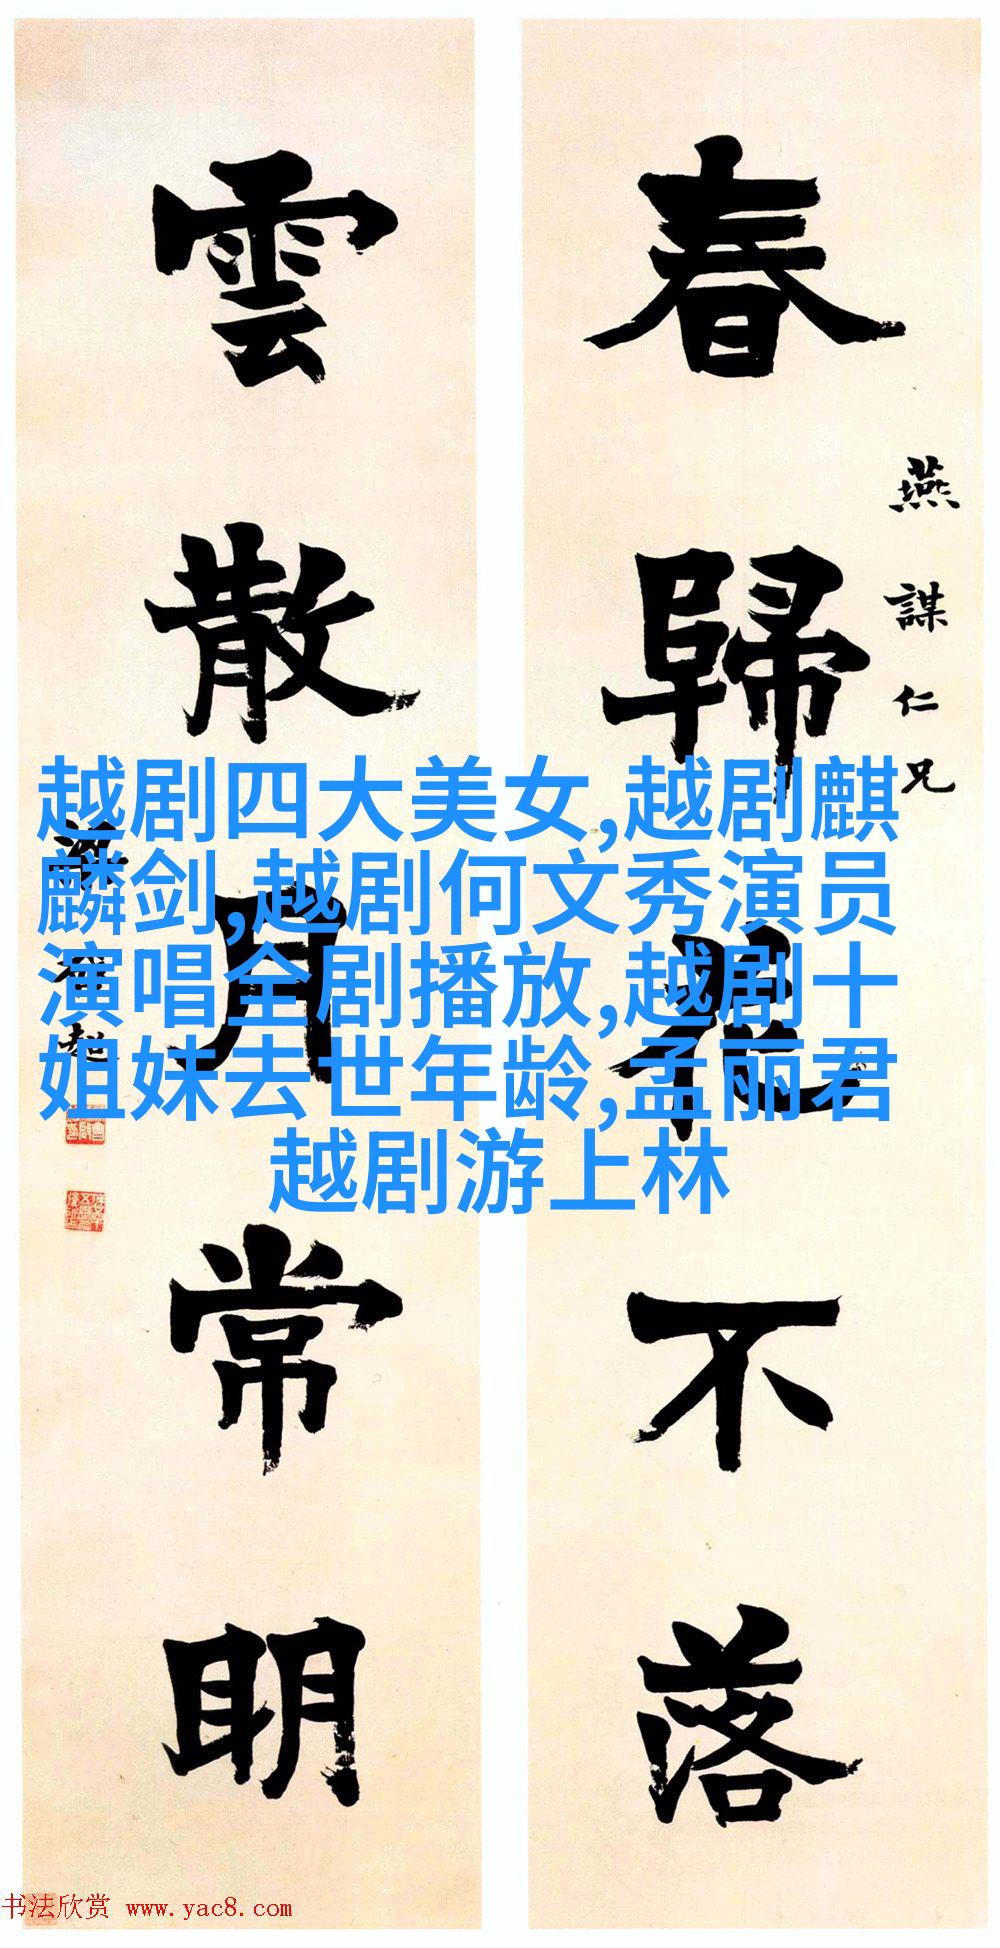 春歸花不落
燕謀仁兄
雲散月常明
越剧四大美女,越剧麒
麟剑,越剧何文秀演员
演唱全剧播放,越剧十
姐妹去世年龄,孟丽君
越剧游上林
书法欣赏 www.yac8.com